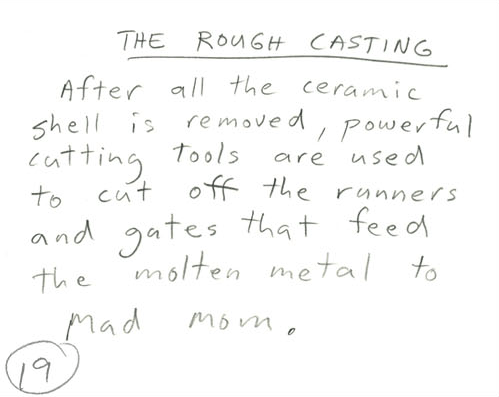 THE ROUGH CASTING
After all the ceramic
shell is removed, powerful
cutting tools are used
to cut off the runners
and gates that feed
the molten metal to
Mad mom.
19